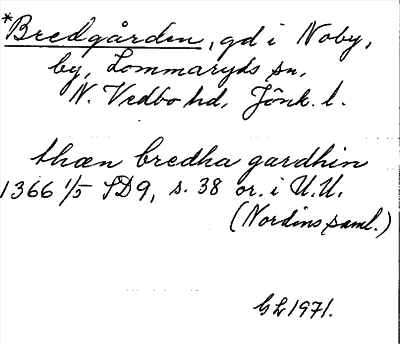 *Bredgården, gd i Noby,
by, Lommaryds sn,
N. Vedbo hd, Jönk. l.
thæn bredha gardhin
1366 1/5 SD9, s. 38 or. i U.U.
(Nordins saml.)
GL 1971.